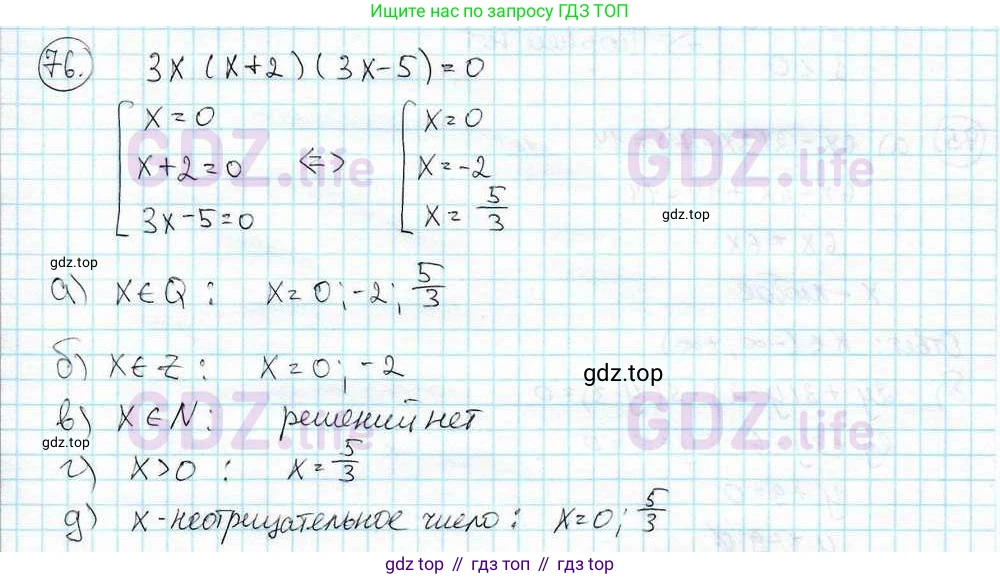 Ищите нас по запросу ГДЗ ТОП
76. 3x (x+2) (3x-5) = 0
[ x = 0 [ x = 0
x+2 = 0 <=> x = -2
3x-5 = 0 x = 5/3
GDZ.life GDZ.life
gdz.top
gdz.top
а) x∈Q : x = 0; -2; 5/3
б) x∈Z : x = 0; -2
gdz.top
в) x∈N : решений нет
GDZ.life GDZ.life
gdz.top
г) x>0 : x = 5/3
д) x - неотрицательное число : x = 0; 5/3
gdz.top // gdz.top // gdz.top